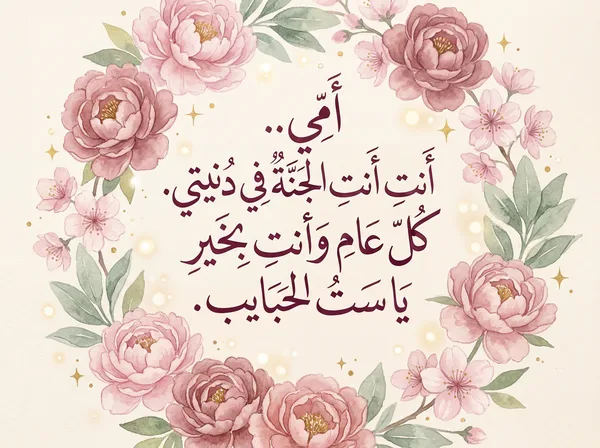 أَمِّي..
أَنتِ أَنتِ الجَنَّةُ فِي دُنيتي.
كُلّ عَامِ وَأنتِ بِخَيرِ
يَا سَتُ الحَبَايب.